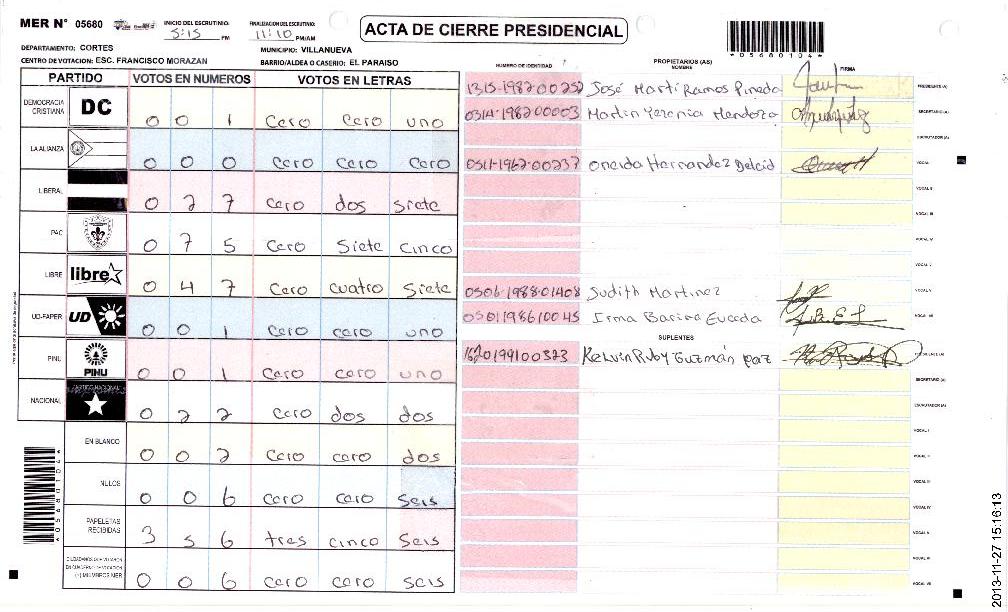 MER N° 05680
INICIO DEL ESCRUTINIO: 5:15 PM
FINALIZACION DEL ESCRUTINIO: 11:10 PM/AM
ACTA DE CIERRE PRESIDENCIAL
*05680104*
DEPARTAMENTO: CORTES
MUNICIPIO: VILLANUEVA
CENTRO DE VOTACION: ESC. FRANCISCO MORAZAN
BARRIO/ALDEA O CASERIO: EL PARAISO
PARTIDO VOTOS EN NUMEROS VOTOS EN LETRAS
NUMERO DE IDENTIDAD PROPIETARIOS (AS) NOMBRE FIRMA
DEMOCRACIA CRISTIANA DC 0 0 1 Cero Cero uno
LA ALIANZA 0 0 0 Cero Cero Cero
LIBERAL 0 2 7 Cero dos Siete
PAC 0 7 5 Cero Siete Cinco
LIBRE libre 0 4 7 Cero cuatro Siete
UD-FAPER UD 0 0 1 Cero cero uno
PINU PINU 0 0 1 Cero cero uno
NACIONAL PARTIDO NACIONAL 0 2 2 cero dos dos
EN BLANCO 0 0 2 Cero cero dos
NULOS 0 0 6 Cero cero Seis
PAPELETAS RECIBIDAS 3 5 6 tres cinco Seis
CIUDADANOS QUE VOTARON EN CUADERNO DE VOTACION (+) MIEMBROS MER 0 0 6 Cero cero seis
1315-1982-00252 José Martí Ramos Pineda PRESIDENTE (A)
0314-1982-00003 SECRETARIO (A)
ESCRUTADOR (A)
0511-1962-00237 Oneida Hernandez Delcid VOCAL I
VOCAL II
VOCAL III
VOCAL IV
VOCAL V
0506-1988-01408 Judith Martinez VOCAL VI
0501198610045 Irma VOCAL VII
SUPLENTES
1620199100323 Kelvin Ruby Guzmán paz PRESIDENTE (A)
SECRETARIO (A)
ESCRUTADOR (A)
VOCAL I
VOCAL II
VOCAL III
VOCAL IV
VOCAL V
VOCAL VI
VOCAL VII
*05680104*
2013-11-27 15:16:13